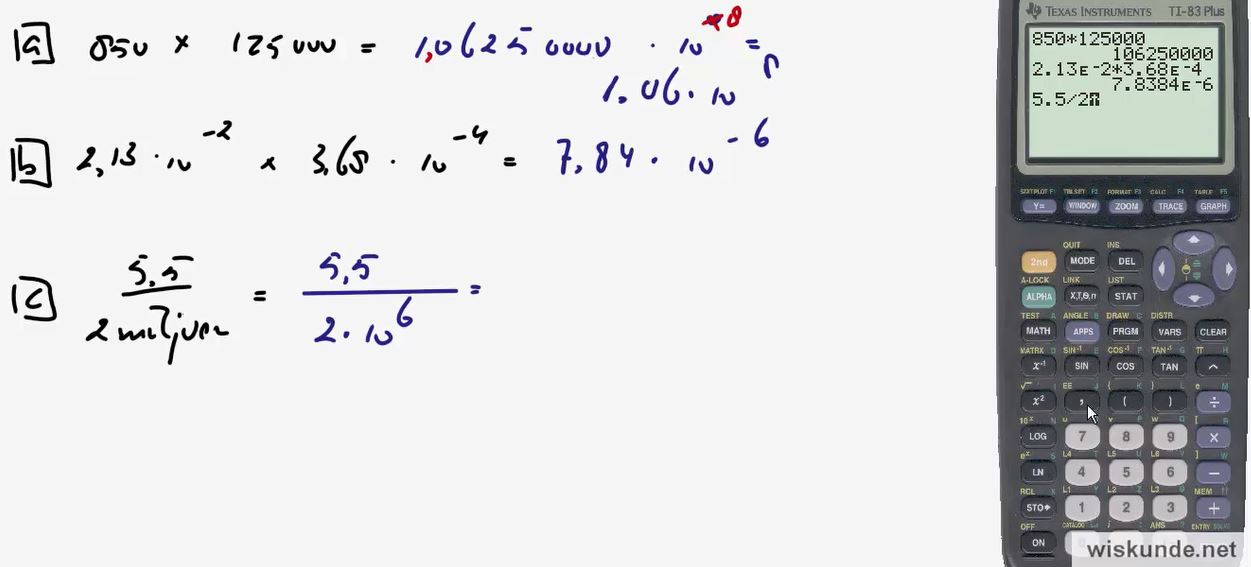 a 850 × 125000 = 1,06250000 · 10^8 =
1.06 · 10^8
b 2,13 · 10^-2 × 3,68 · 10^-4 = 7,84 · 10^-6
c 5,5 / 2 miljoen = 5,5 / 2 · 10^6 =
TEXAS INSTRUMENTS TI-83 Plus
850*125000
106250000
2.13E-2*3.68E-4
7.8384E-6
5.5/2
STATPLOT F1 TBLSET F2 FORMAT F3 CALC F4 TABLE F5
Y= WINDOW ZOOM TRACE GRAPH
QUIT INS
2nd MODE DEL
A-LOCK LINK LIST
ALPHA X,T,Θ,n STAT
TEST A ANGLE B DRAW C DISTR
MATH APPS PRGM VARS CLEAR
MATRX D SIN⁻¹ E COS⁻¹ F TAN⁻¹ G π H
x⁻¹ SIN COS TAN ^
√ I EE J { K } L e M
x² , ( ) ÷
10ˣ N u O v P w Q [ R
LOG 7 8 9 ×
eˣ S L4 T L5 U L6 V ] W
LN 4 5 6 −
RCL X L1 Y L2 Z L3 θ MEM "
STO▸ 1 2 3 +
OFF CATALOG i : ANS ? ENTRY SOLVE
ON
wiskunde.net